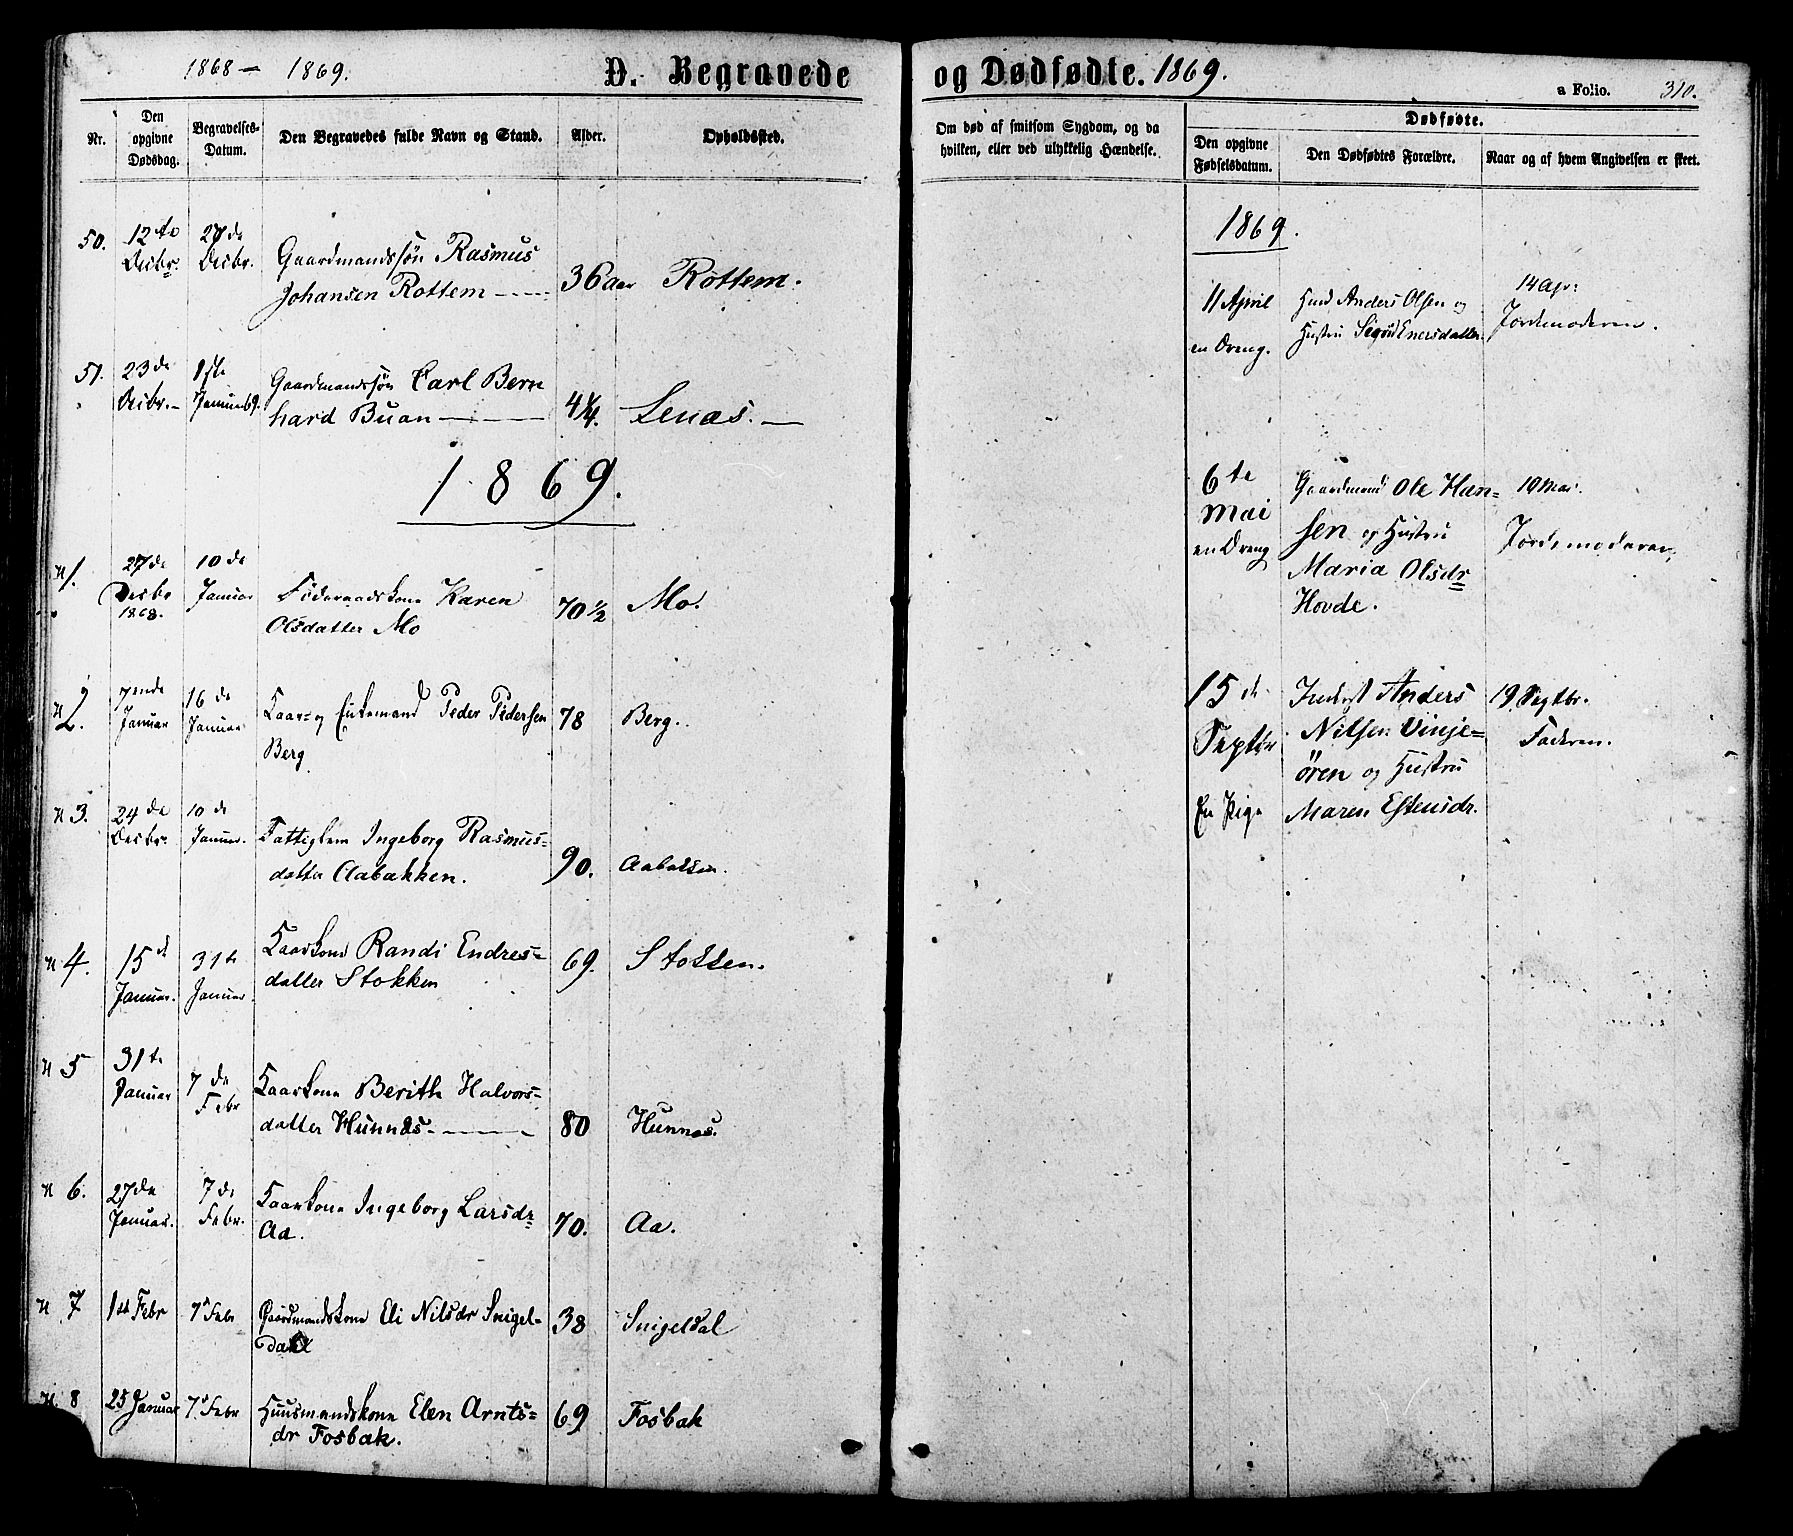 1868 — 1869.
D. Begravede
Nr.
Den opgivne Dødsdag.
Begravelses-Datum.
Den Begravedes fulde Navn og Stand.
Alder.
Opholdssted.
50.
12te Decbr.
27de Decbr.
Gaardmandssøn Rasmus
Johansen Rottem
36 aar
Rottem.
51.
23de Decbr.
1ste Januar 69.
Gaardmandssøn Carl Bern
hard Buan
4¼.
Lenæs.
1869.
N 1.
27de Decbr 1868.
10de Januar
Föderaadskone Karen
Olsdatter Mo
70 ½
Mo.
N 2.
7ende Januar
16de Januar
Kaar- og Enkemand Peder Pedersen
Berg
78
Berg.
N 3.
24de Decbr.
10de Januar.
Fattiglem Ingeborg Rasmus=
datter Aabakken.
90.
Aabakken.
N 4.
15de Januar.
31te Januar
Kaarkone Randi Endres=
datter Stokken
69.
Stokken.
N 5
31te Januar
7de Febr
Kaarkone Berith Halvors=
datter Hunnæs
80
Hunnæs.
N 6.
27de Januar.
7de Febr.
Kaarkone Ingeborg Larsdr
Aa.
70.
Aa.
N 7
1st Febr
7 Febr
Gaardmandskone Eli Nilsdr Snigel=
dal
38
Snigeldal
N. 8
25 Januar
7 Febr
Huusmandskone Elen Arnts=
dr Fosbak.
69
Fosbak
og Dødfødte. 1869.
a Folio. 310.
Om død af smitsom Sygdom, og da
hvilken, eller ved ulykkelig Hændelse.
Dødfødte.
Den opgivne Fødselsdatum.
Den Dødfødtes Forældre.
Naar og af hvem Angivelsen er skeet.
1869.
11 April
en Dreng.
Anders Olsen og
Hustru Sigrid Enersdatter
14 Apr:
Jordemoderen.
6te
Mai
en Dreng
Gaardmand Ole Han=
sen og Hustru
Maria Olsdr
Hovde.
10 Mai.
Jordemoderen,
15de
Septbr
En Pige
Inderst Anders
Nilsen Vinje=
ören og Hustru
Maren Estensdr.
19 Septbr.
Faderen.